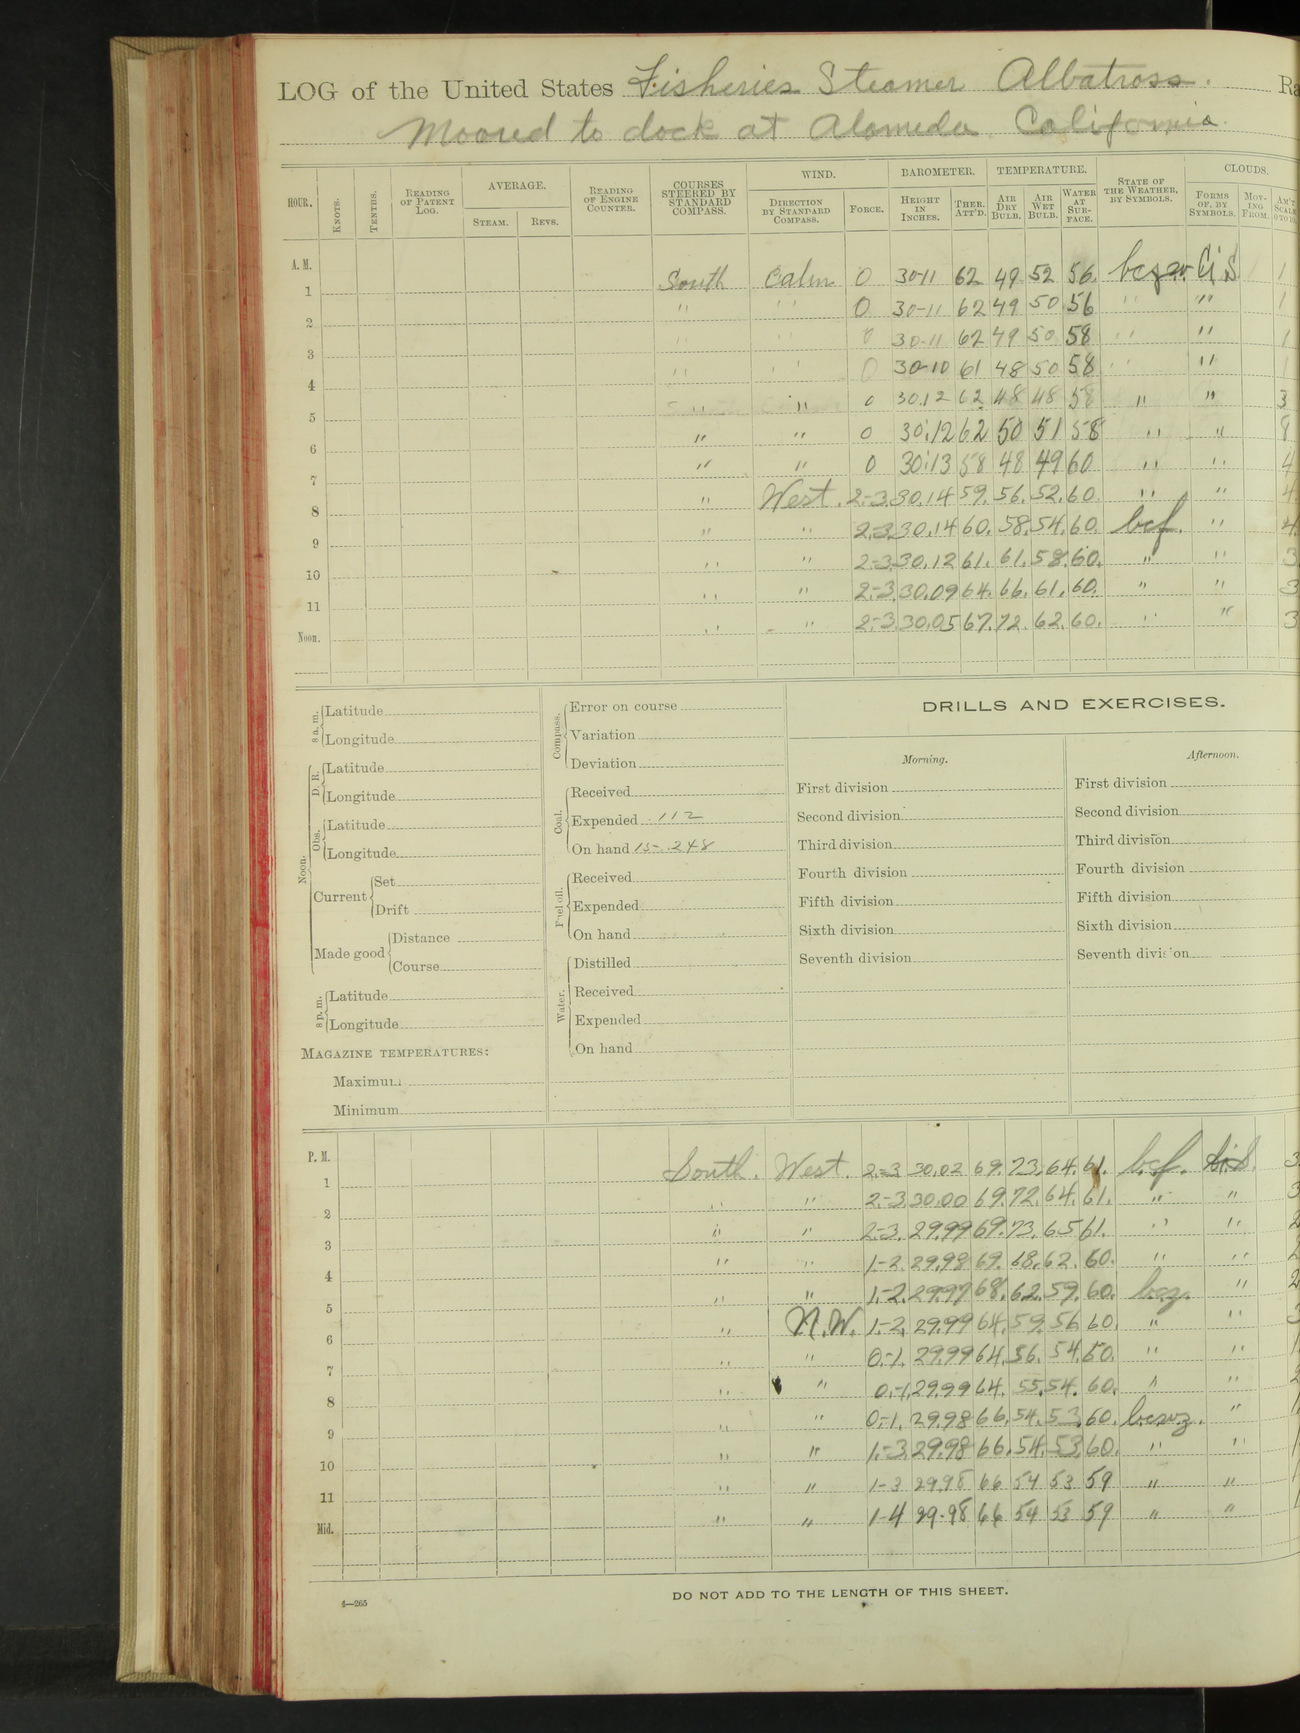 LOG of the United States Fisheries Steamer Albatross. Ra
Moored to dock at Alameda California.
HOUR. KNOTS. TENTHS. READING OF PATENT LOG. AVERAGE. STEAM. REVS. READING OF ENGINE COUNTER. COURSES STEERED BY STANDARD COMPASS. WIND. DIRECTION BY STANDARD COMPASS. FORCE. BAROMETER. HEIGHT IN INCHES. THER. ATT'D. TEMPERATURE. AIR DRY BULB. AIR WET BULB. WATER AT SUR-FACE. STATE OF THE WEATHER, BY SYMBOLS. CLOUDS. FORMS OF, BY SYMBOLS. MOV-ING FROM. AM'T SCALE 0 TO 10.
A. M.
1 South Calm 0 30-11 62 49 52 56. Ci S 1
2 " " 0 30-11 62 49 50 56 " " 1
3 " " 0 30-11 62 49 50 58 " " 1
4 " " 0 30-10 61 48 50 58 " " 1
5 " " 0 30.12 62 48 48 58 " " 3
6 " " 0 30.12 62 50 51 58 " " 8
7 " " 0 30.13 58 48 49 60 " " 4
8 " West. 2-3. 30.14 59. 56. 52. 60. " " 4.
9 " " 2-3. 30.14 60. 58. 54. 60. bcf. " 4.
10 " " 2-3. 30.12 61. 61. 58. 60. " " 3
11 " " 2-3. 30.09 64. 66. 61. 60. " " 3
Noon. " " 2-3. 30.05 67. 72. 62. 60. " " 3
8 a. m. Latitude
Longitude
Noon. D. R. Latitude
Longitude
Obs. Latitude
Longitude
Current Set
Drift
Made good Distance
Course
8 p. m. Latitude
Longitude
MAGAZINE TEMPERATURES:
Maximum
Minimum
Compass. Error on course
Variation
Deviation
Coal. Received
Expended 112
On hand 15-248
Fuel oil. Received
Expended
On hand
Water. Distilled
Received
Expended
On hand
DRILLS AND EXERCISES.
Morning.
First division
Second division
Third division
Fourth division
Fifth division
Sixth division
Seventh division
Afternoon.
First division
Second division
Third division
Fourth division
Fifth division
Sixth division
Seventh division
P. M.
1 South. West. 2-3 30.02 69. 73. 64. 61. bcf. Ci.S. 3
2 " " 2-3. 30.00 69. 72. 64. 61. " " 3
3 " " 2-3. 29.99 69. 73. 65 61. " " 2
4 " " 1-2. 29.98 69. 68. 62. 60. " " 2
5 " " 1-2. 29.97 68. 62. 59. 60. bcz. " 2
6 " N.W. 1-2. 29.99 64. 59. 56 60. " " 3
7 " " 0-1. 29.99 64. 56. 54. 60. " " 1
8 " " 0-1. 29.99 64. 55. 54. 60. " " 2
9 " " 0-1. 29.98 66. 54. 53. 60. " 1
10 " " 1-3. 29.98 66. 54. 53. 60. " " 1
11 " " 1-3 29.98 66 54 53 59 " " 1
Mid. " " 1-4 29-98 66 54 53 59 " " 1
4—265
DO NOT ADD TO THE LENGTH OF THIS SHEET.